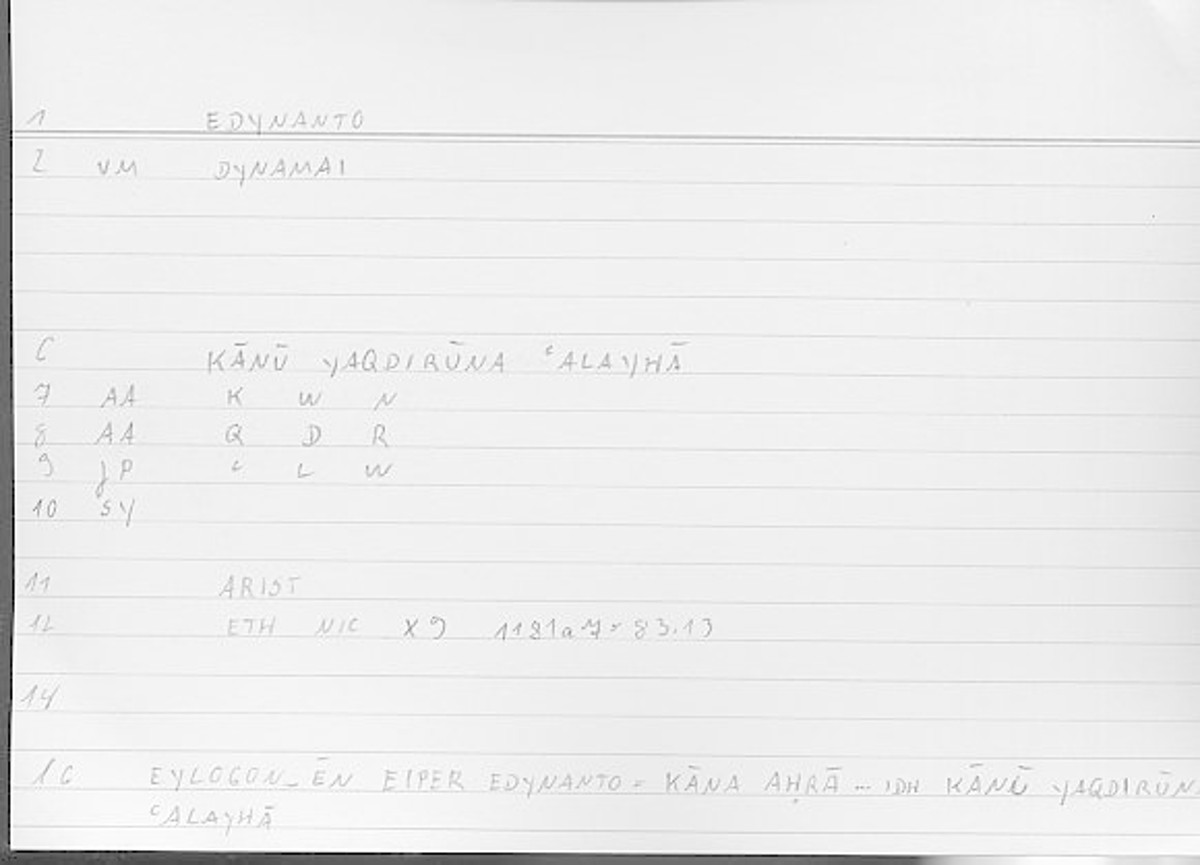 1 EDYNANTO
2 VM DYNAMAI
6 KĀNŪ YAQDIRŪNA ʿALAYHĀ
7 AA K W N
8 AA Q D R
9 JP ʿ L W
10 SY
11 ARIST
12 ETH NIC X9 1181a7 = 83.13
14
16 EYLOGON_ĒN EIPER EDYNANTO = KĀNA AḤRĀ ... IDH KĀNŪ YAQDIRŪN
ʿALAYHĀ